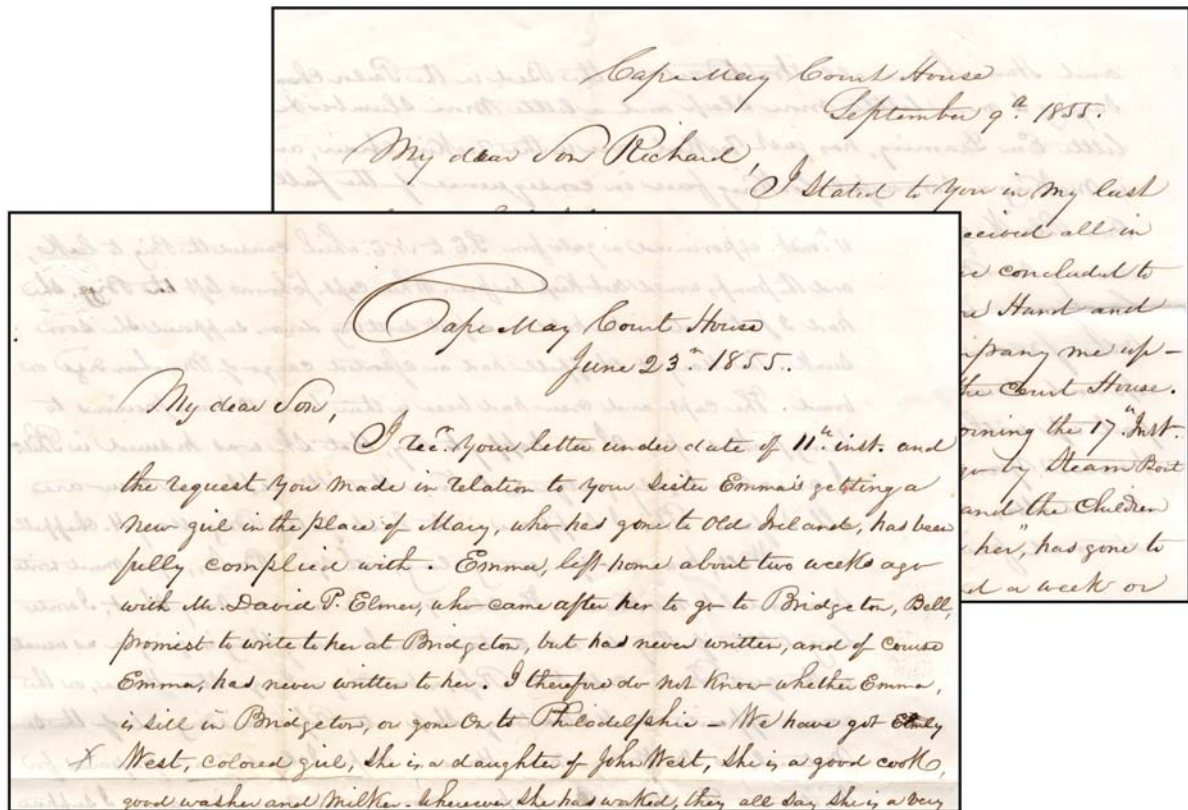 Cape May Court House
September 9th. 1855.
My dear Son Richard,
I stated to you in my last
ceived all in
ve concluded to
re Hand and
mpany me up-
the Court House.
orning the 17th Inst.
go by Steam Boat
and the Children
her", has gone to
d a week or
Cape May Court House
June 23rd 1855..
My dear Son,
I recd. your letter under date of 11th. inst. and
the request you made in relation to your sister Emma's getting a
new girl in the place of Mary, who has gone to Old Ireland, has been
fully complied with. Emma, left home about two weeks ago
with M. David P. Elmer, who came after her to go to Bridgeton, Bell,
promist to write to her at Bridgeton, but has never written, and of course
Emma, has never written to her. I therefore do not know whether Emma,
is sill in Bridgeton, or gone on to Philadelphia - We have got Emily
X West, colored girl, she is a daughter of John West, she is a good cook,
good washer and milker. Wherever she has worked, they all say she is a very